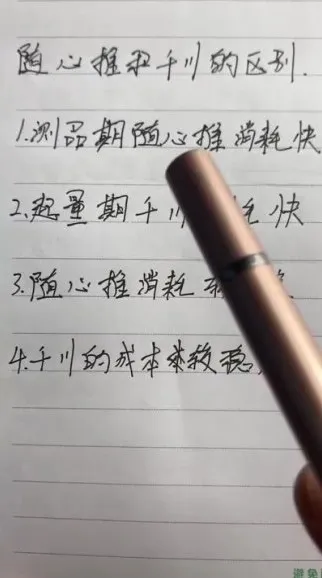 随心推和千川的区别.
1.测品期随心推消耗快
2.起量期千川耗快
3.随心推消耗
4.千川的成本来较稳,
避免